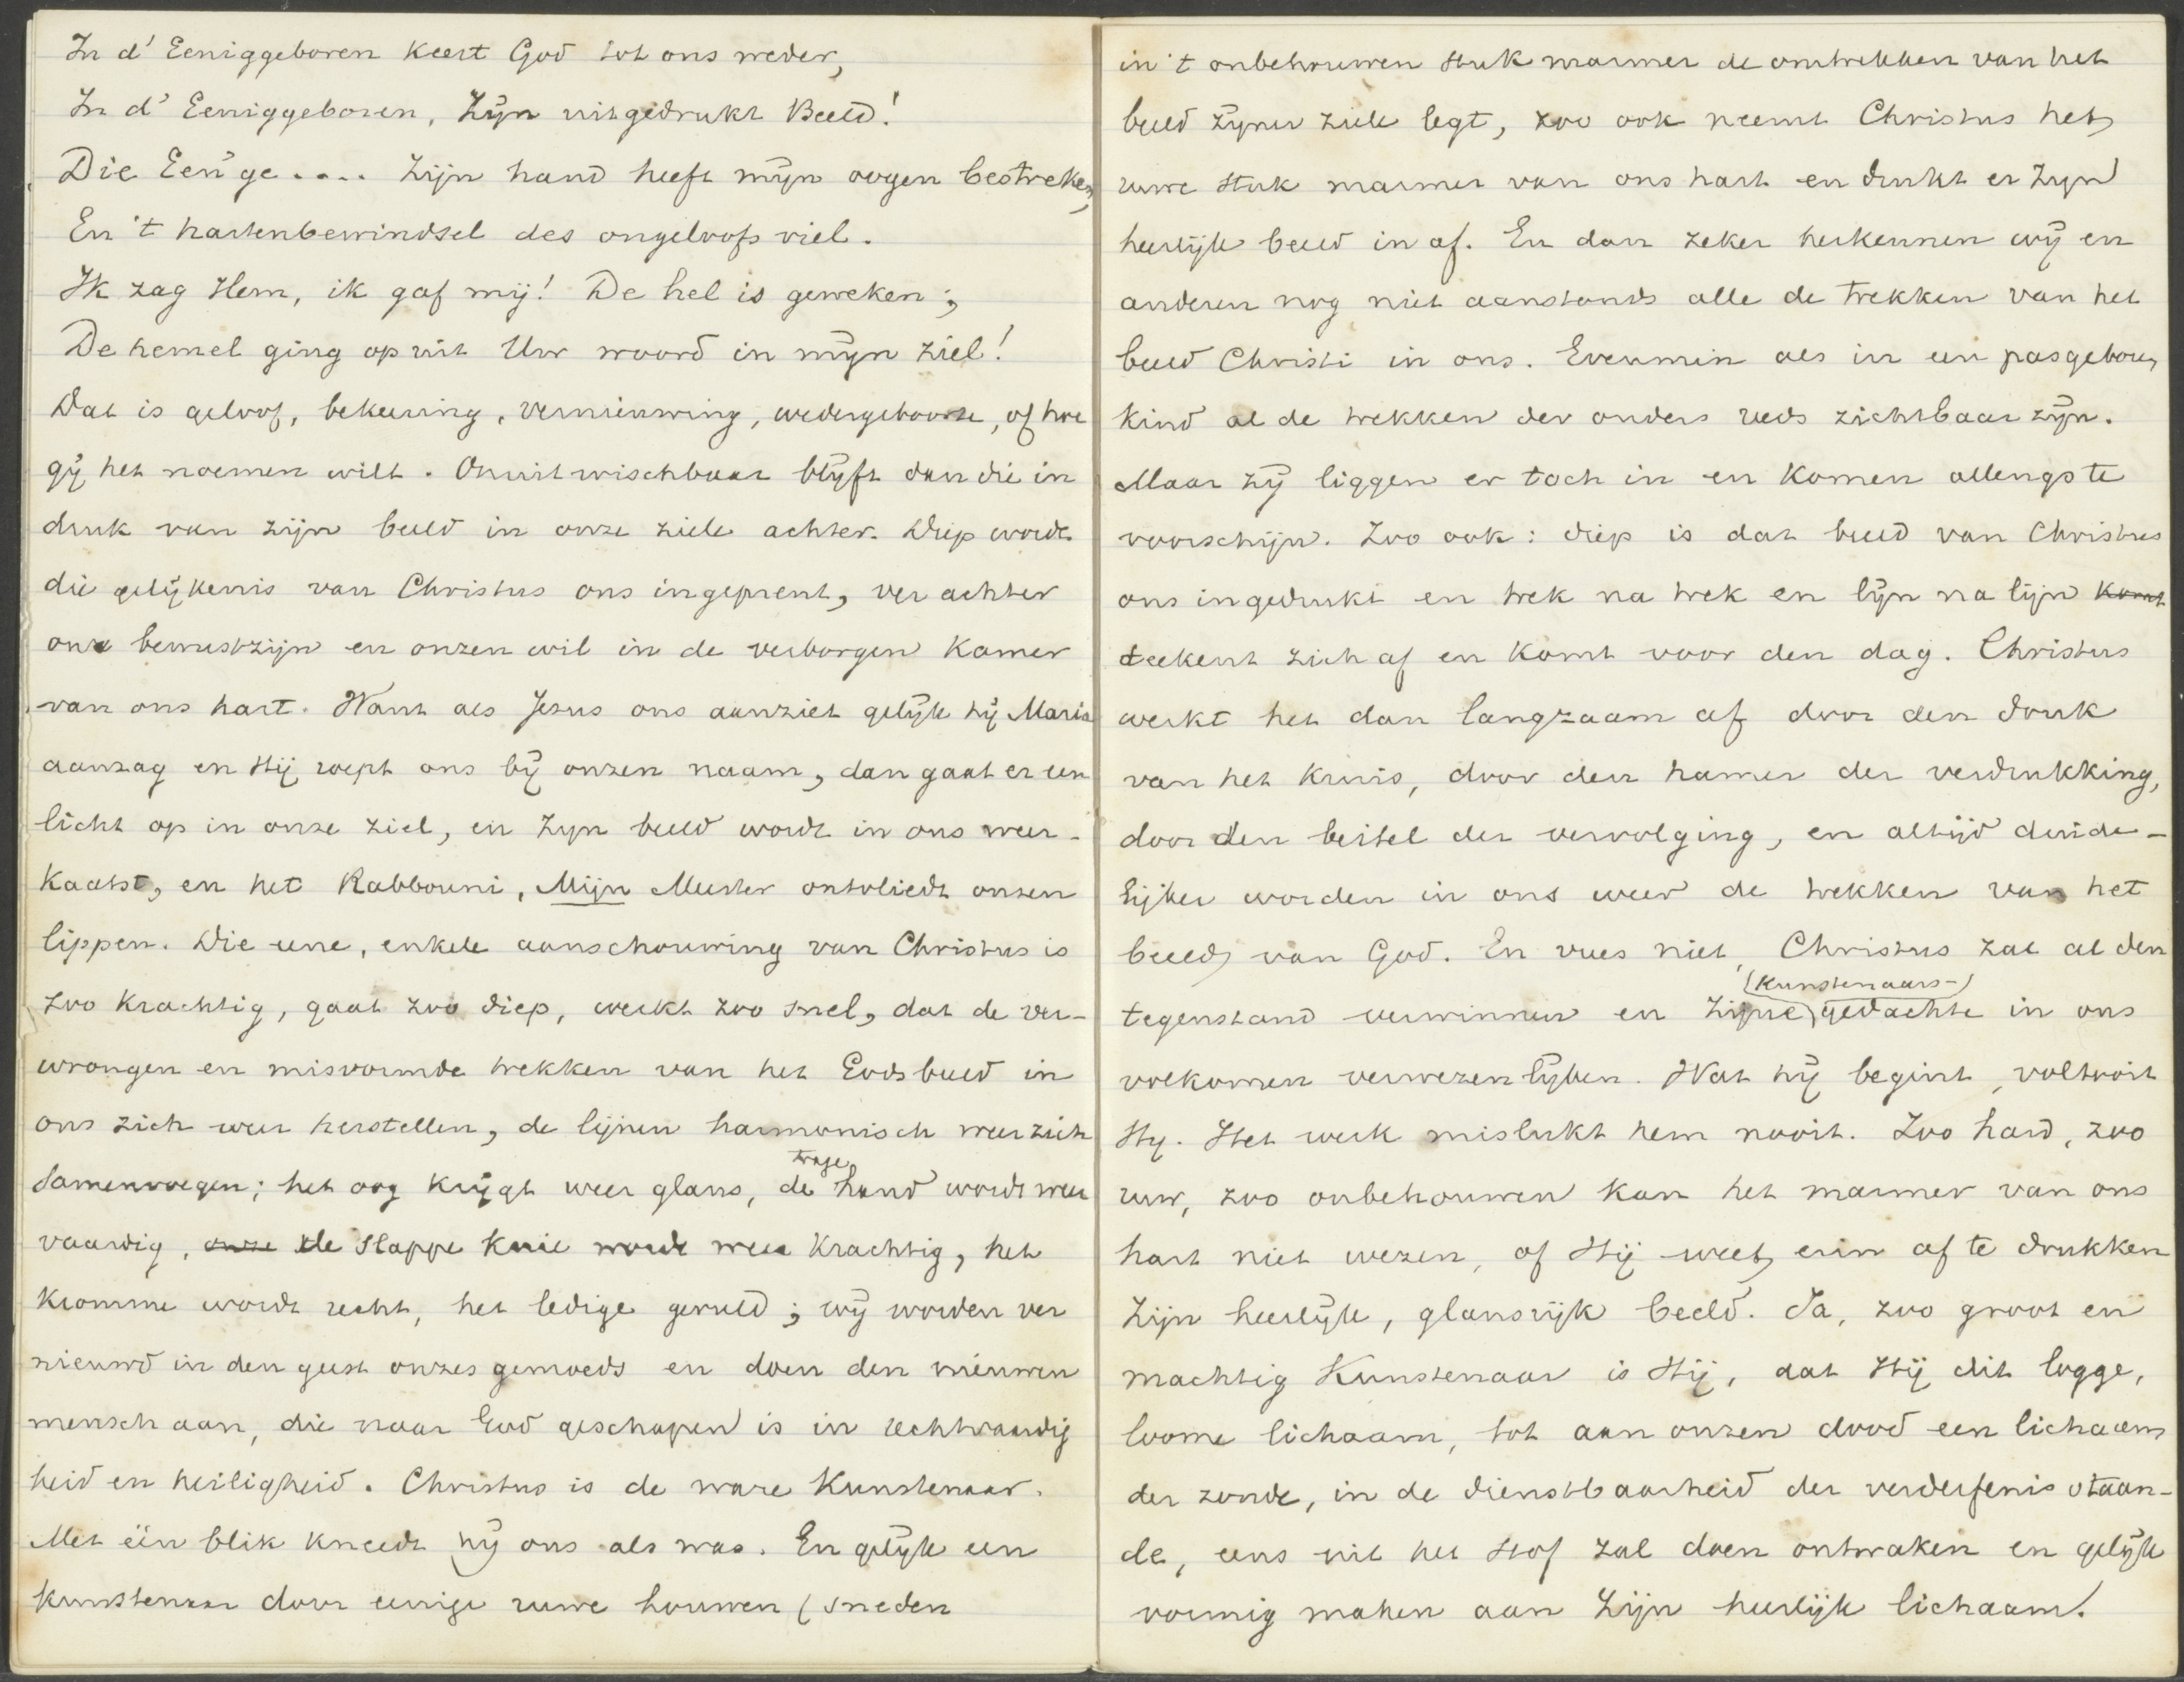 In d' Eeniggeboren keert God tot ons weder,
In d' Eeniggeboren, Zijn uitgedrukt Beeld!
Die Een'ge .... Zijn hand heeft mijn oogen bestreken,
En 't hartenbewindsel des ongeloofs viel.
Ik zag Hem, ik gaf mij! De hel is geweken;
De hemel ging op uit Uw woord in mijn ziel!
Dat is geloof, bekeering, vernieuwing, wedergeboorte, of hoe
gij het noemen wilt. Onuitwischbaar blijft dan die in
druk van zijn beeld in onze ziele achter. Diep wordt
die gelijkenis van Christus ons ingeprent, ver achter
ons bewustzijn en onzen wil in de verborgen kamer
van ons hart. Want als Jezus ons aanziet gelijk hij Maria
aanzag en Hij roept ons bij onzen naam, dan gaat er een
licht op in onze ziel, en Zijn beeld wordt in ons weer-
kaatst, en het Rabbouni, Mijn Meester ontvliedt onzen
lippen. Die eene, enkele aanschouwing van Christus is
zoo krachtig, gaat zoo diep, werkt zoo snel, dat de ver-
wrongen en misvormde trekken van het Godsbeeld in
ons zich weer herstellen, de lijnen harmonisch weer zich
samenvoegen; het oog krijgt weer glans, de trage hand wordt weer
vaardig, onze de slappe knie wordt weer krachtig, het
kromme wordt recht, het ledige gevuld; wij worden ver
nieuwd in den geest onzes gemoeds en doen den nieuwen
mensch aan, die naar God geschapen is in rechtvaardig
heid en heiligheid. Christus is de ware Kunstenaar.
Met één blik kneedt hij ons als was. En gelijk een
kunstenaar door eenige ruwe houwen (sneden
in 't onbehouwen stuk marmer de omtrekken van het
beeld zijner ziele legt, zoo ook neemt Christus het
ruwe stuk marmer van ons hart en drukt er Zijn
heerlijk beeld in af. En dan zeker herkennen wij en
anderen nog niet aanstonds alle de trekken van het
beeld Christi in ons. Evenmin als in een pasgeboren
kind al de trekken der ouders reeds zichtbaar zijn.
Maar zij liggen er toch in en komen allengs te
voorschijn. Zoo ook: diep is dat beeld van Christus
ons ingedrukt en trek na trek en lijn na lijn komt
teekent zich af en komt voor den dag. Christus
werkt het dan langzaam af door den druk
van het kruis, door den hamer der verdrukking,
door den beitel der vervolging, en altijd duide-
lijker worden in ons weer de trekken van het
beeld van God. En vrees niet, Christus zal al den
tegenstand verwinnen en Zijne (kunstenaars-) gedachte in ons
volkomen verwezenlijken. Wat hij begint, voltooit
Hij. Het werk mislukt hem nooit. Zoo hard, zoo
ruw, zoo onbehouwen kan het marmer van ons
hart niet wezen, of Hij weet erin af te drukken
Zijn heerlijk, glansrijk beeld. Ja, zoo groot en
machtig Kunstenaar is Hij, dat Hij dit logge,
loome lichaam, tot aan onzen dood een lichaam
der zonde, in de dienstbaarheid der verderfenis staan-
de, eens uit het stof zal doen ontwaken en gelijk
vormig maken aan Zijn heerlijk lichaam.